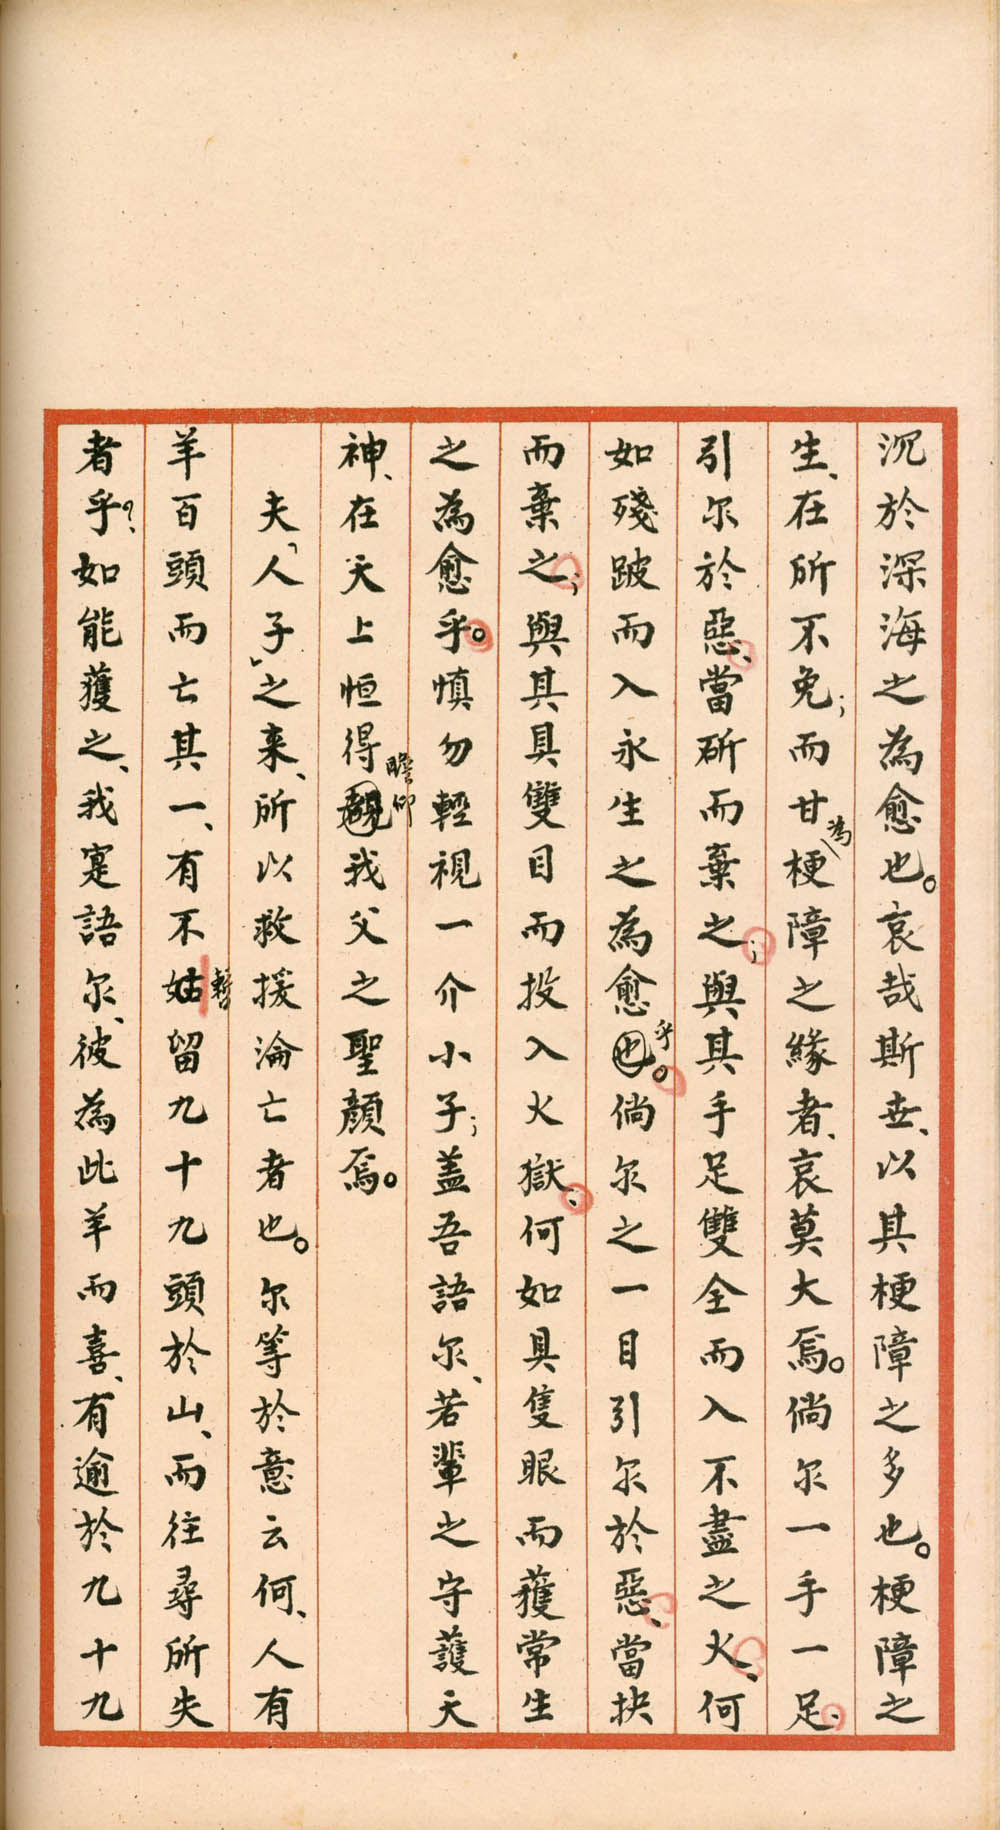 沉於深海之為愈也。哀哉斯世、以其梗障之多也。梗障之
生、在所不免；而甘為梗障之緣者、哀莫大焉。倘尔一手一足、
引尔於惡、當斫而棄之；與其手足雙全而入不盡之火、何
如殘跛而入永生之為愈也乎。倘尔之一目引尔於惡、當抉
而棄之；與其具雙目而投入火獄、何如具隻眼而獲常生
之為愈乎。慎勿輕視一介小子；蓋吾語尔、若輩之守護天
神、在天上恒得瞻仰我父之聖顏焉。
夫「人子」之來、所以救援淪亡者也。尔等於意云何、人有
羊百頭而亡其一、有不姑暫留九十九頭於山、而往尋所失
者乎？如能獲之、我寔語尔、彼為此羊而喜、有逾於九十九